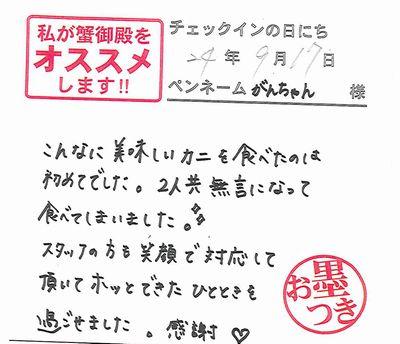 私が蟹御殿を
オススメ
します!!
チェックインの日にち
24年9月17日
ペンネーム がんちゃん 様
こんなに美味しいカニを食べたのは
初めてでした。2人共無言になって
食べてしまいました。
スタッフの方も笑顔で対応して
頂いてホッとできたひとときを
過ごせました。感謝♡
お墨つき